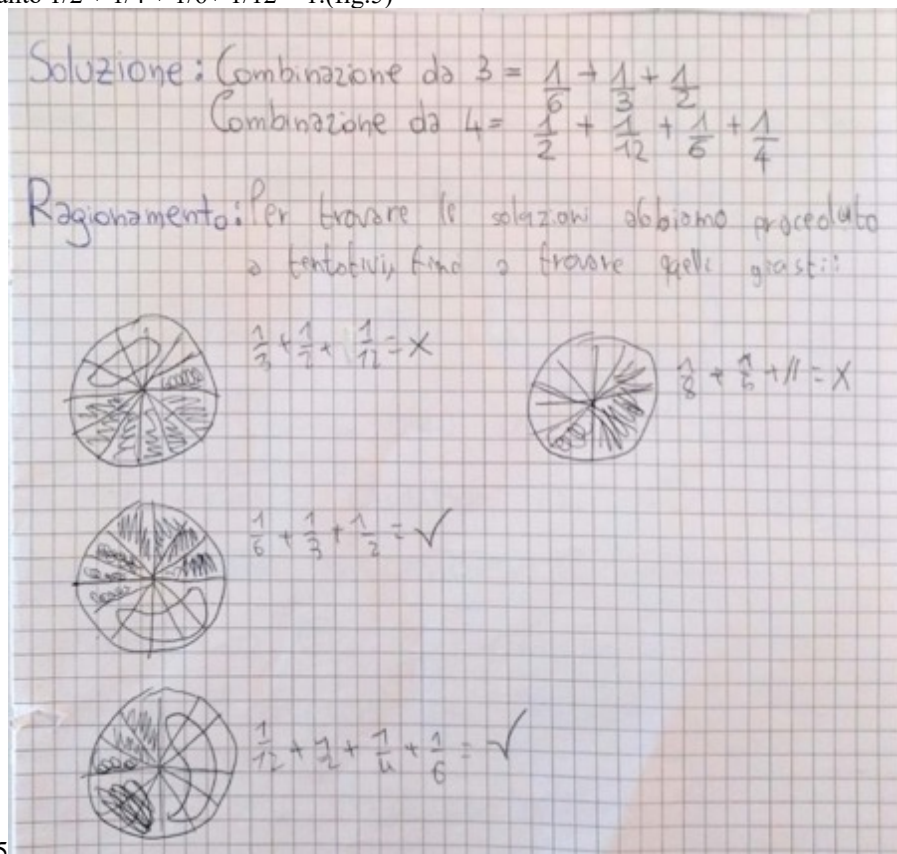 1/2 + 1/4 + 1/6+ 1/12 = 1.(fig.5)
Soluzione: Combinazione da 3 = 1/6 + 1/3 + 1/2
Combinazione da 4 = 1/2 + 1/12 + 1/6 + 1/4
Ragionamento: Per trovare le soluzioni abbiamo proceduto
a tentativi, fino a trovare quelli giusti:
1/3 + 1/2 + 1/12 = X
1/8 + + // = X
1/6 + 1/3 + 1/2 = √
1/12 + 1/2 + 1/4 + 1/6 = √
5